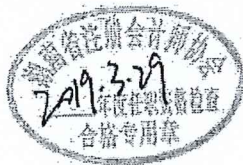 湖南省注册会计师协会
2019.3.29
年度任职资格检查
合格专用章